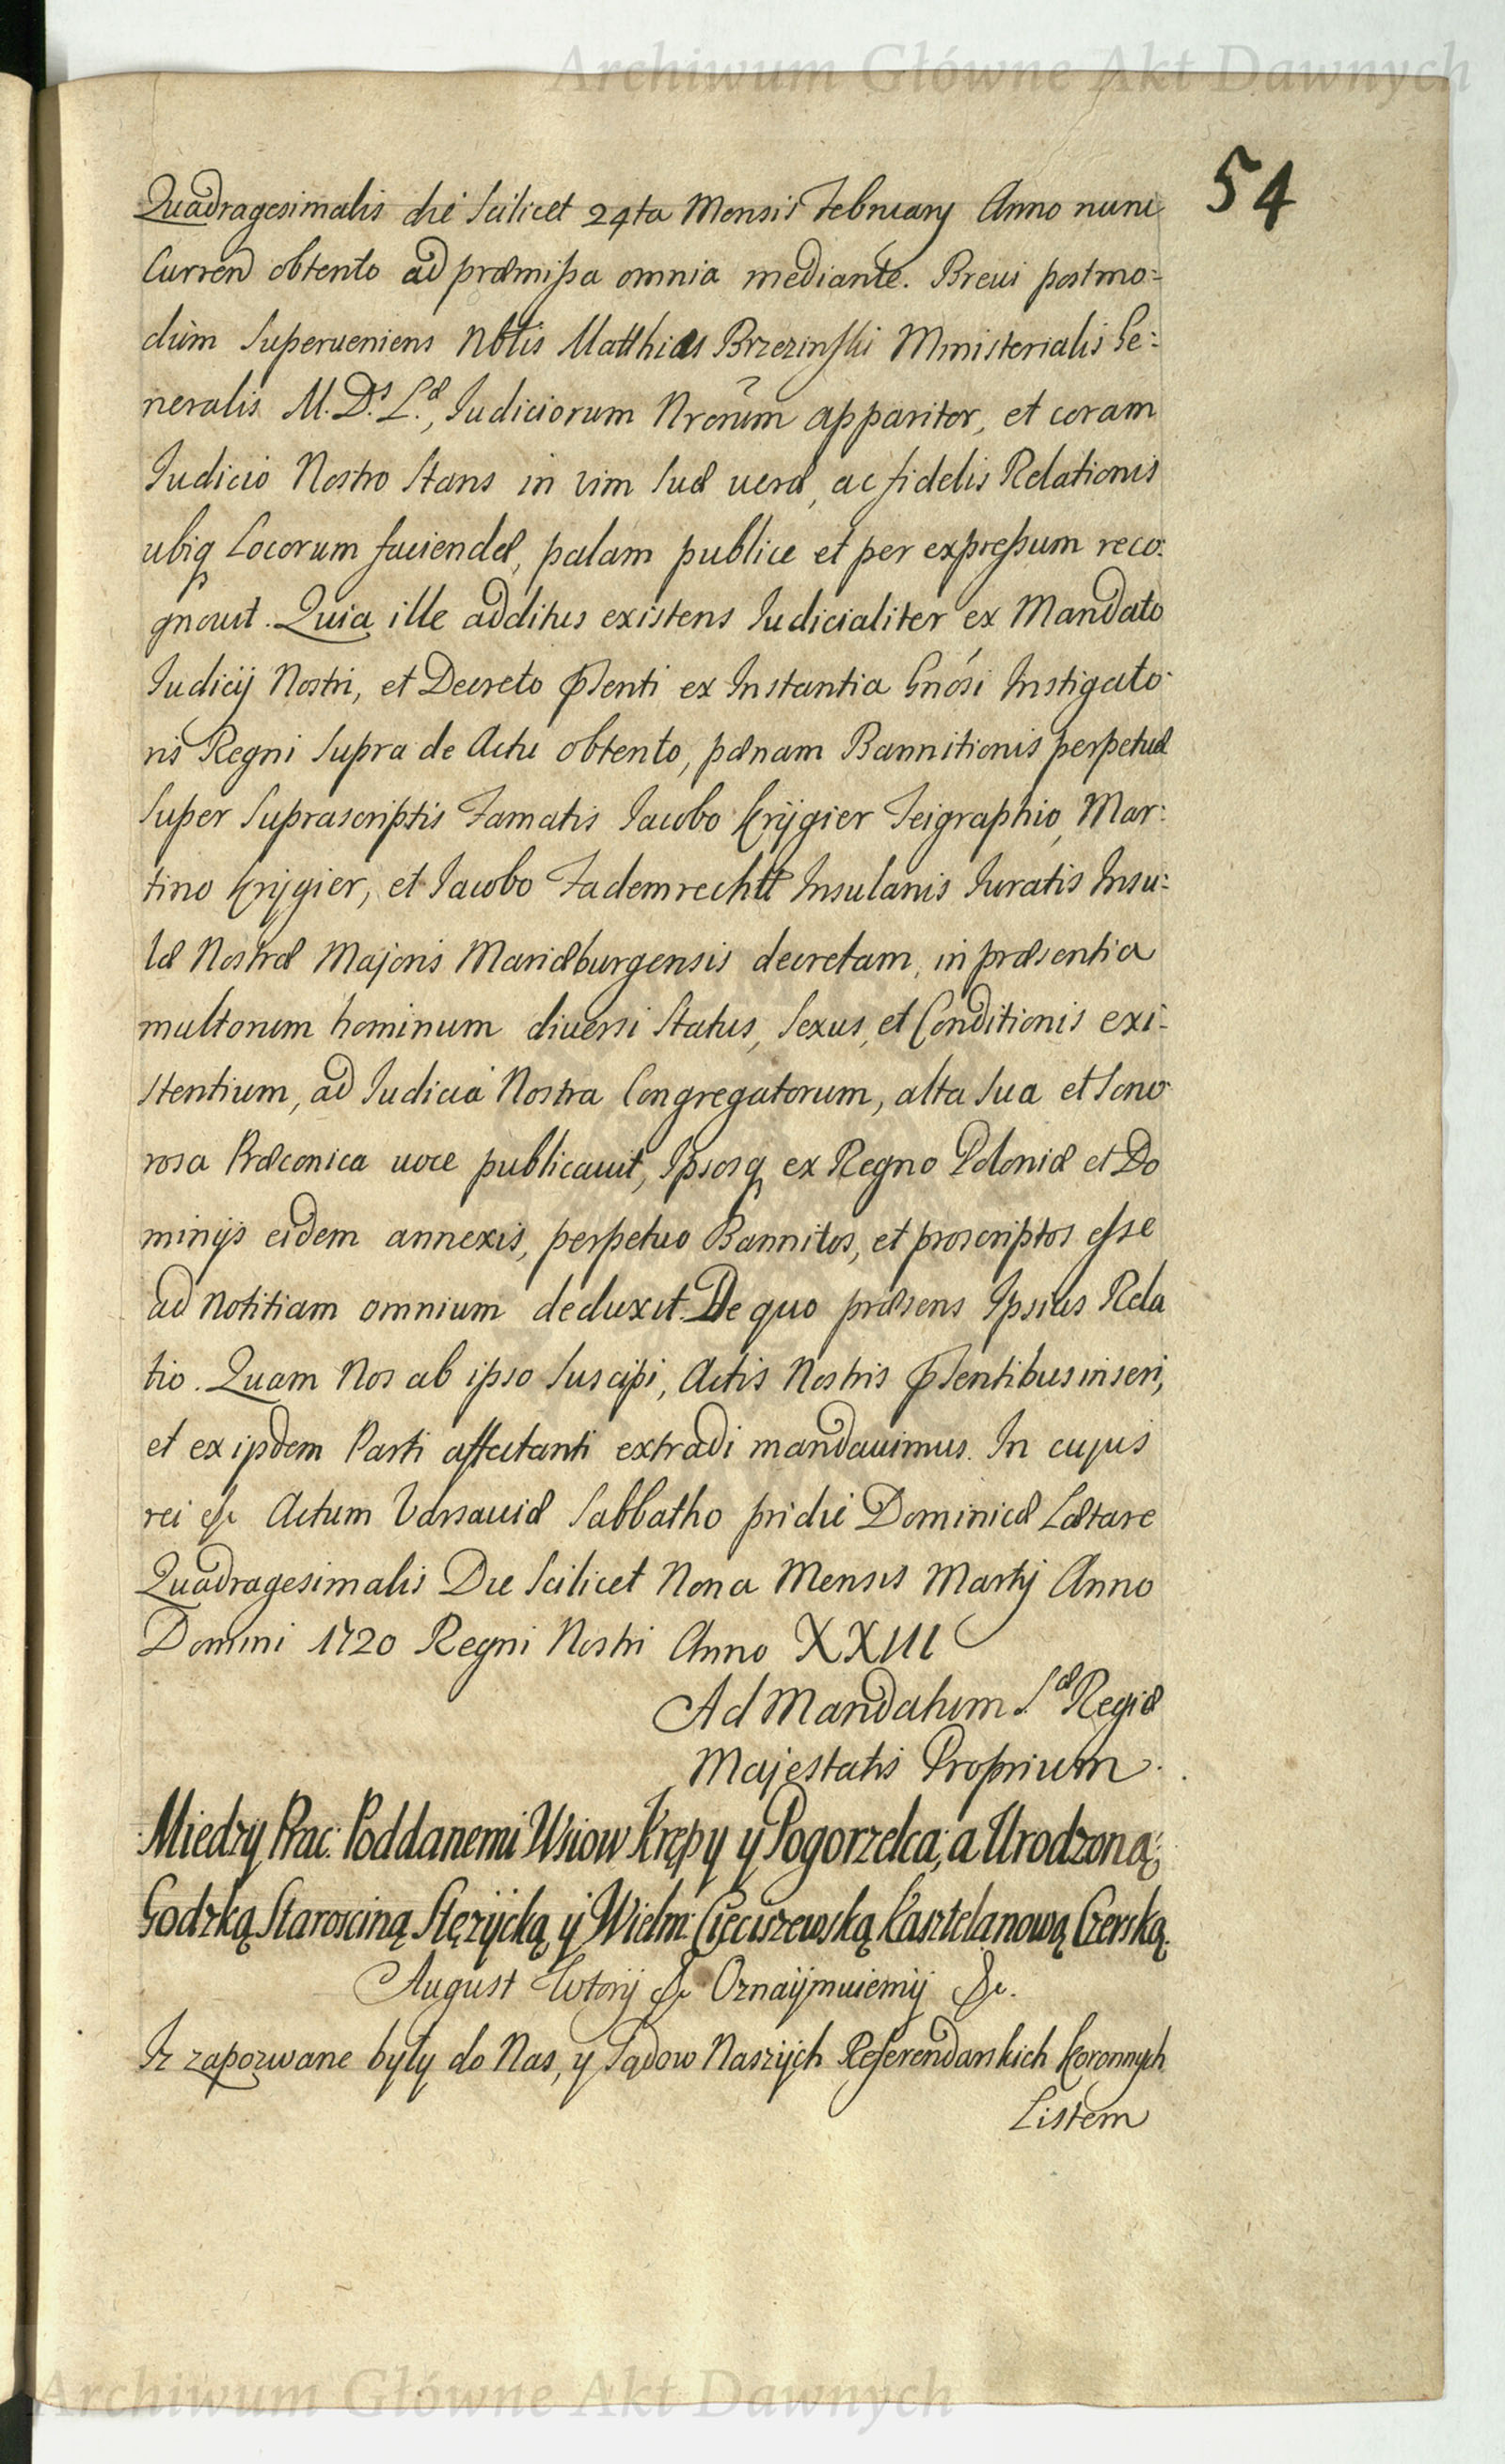 Archiwum Główne Akt Dawnych
54
Quadragesimalis die Scilicet 24ta Mensis Februarij Anno nunc
Curren obtento ad præmissa omnia mediante. Breui postmo:
dùm Superueniens Nbłis Matthias Brzezinski Ministerialis Ge:
neralis M. D.s L.æ, Iudiciorum Nrorum apparitor, et coram
Iudicio Nostro Stans in vim Suæ ueræ, ac fidelis Relationis
ubiq Locorum faciendæ, palam publice et per expressum reco:
gnouit. Quia ille additus existens Iudicialiter ex Mandato
Iudicij Nostri, et Decreto Pſsenti ex Instantia Gnósi Instigato:
ris Regni Supra de Actu obtento, pænam Bannitionis perpetuæ
Super Suprascriptis Famatis Iacobo Krijgier Teigraphio, Mar:
tino Krijgier, et Iacobo Fademrechtt Insulanis Iuratis Insu:
læ Nostræ Majoris Mariæburgensis decretam, in præsentia
multorum hominum diuersi Status, Sexus, et Conditionis exi:
stentium, ad Iudicia Nostra Congregatorum, alta Sua et Sono:
rosa Præconica uoce publicauit, Ipsosq ex Regno Poloniæ et Do
minijs eidem annexis, perpetuo Bannitos, et proscriptos esse
ad notitiam omnium deduxit. De quo præsens Ipsius Rela
tio. Quam Nos ab ipso Suscipi, Actis Nostris Pſsentibus inseri,
et ex ijsdem Parti affectanti extradi mandauimus. In cujus
rei &c Actum Varsauiæ Sabbatho pridie Dominicæ Lætare
Quadragesimalis Die Scilicet Nona Mensis Martij Anno
Domini 1720 Regni Nostri Anno XXIII
Ad Mandatum S.æ Regiæ
Majestatis Proprium.
Miedzy Prac: Poddanemi Wsiow Krępy y Pogorzelca, a Urodzoną
Godzką Starosciną Stęzijcką, ÿ Wielm: Cieciszewską Kasztelanową Czerską.
August Wtorij &c Oznaijmuiemij &c.
Iz zapozwane były do Nas, y Sądow Naszijch Referendarskich Koronnych
Listem
Archiwum Główne Akt Dawnych